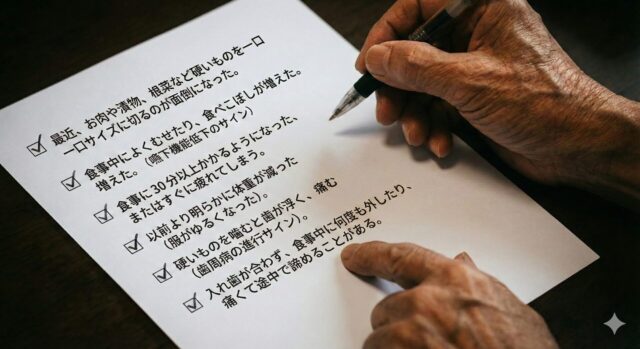 最近、お肉や漬物、根菜など硬いものを一口
一口サイズに切るのが面倒になった。
食事中によくむせたり、食べこぼしが増えた。
増えた。(嚥下機能低下のサイン)
食事に30分以上かかるようになった、
またはすぐに疲れてしまう。
以前より明らかに体重が減った
(服がゆるくなった)。
硬いものを噛むと歯が浮く、痛む
(歯周病の進行サイン)。
入れ歯が合わず、食事中に何度も外したり、
痛くて途中で諦めることがある。